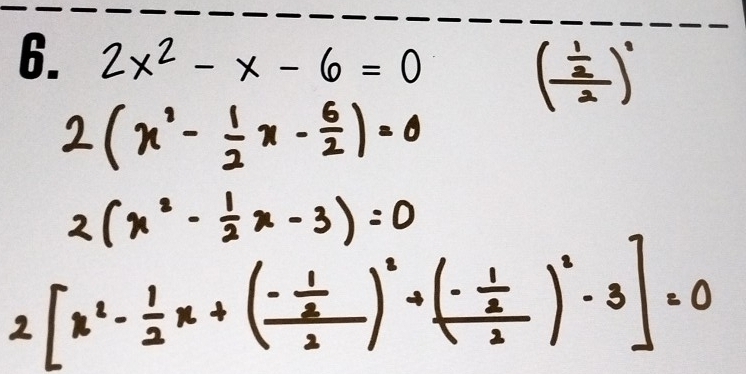 6. 2x² - x - 6 = 0
((1/2)/2)²
2(x² - 1/2 x - 6/2) = 0
2(x² - 1/2 x - 3) = 0
2[x² - 1/2 x + ((-1/2)/2)² + ((-1/2)/2)² - 3] = 0